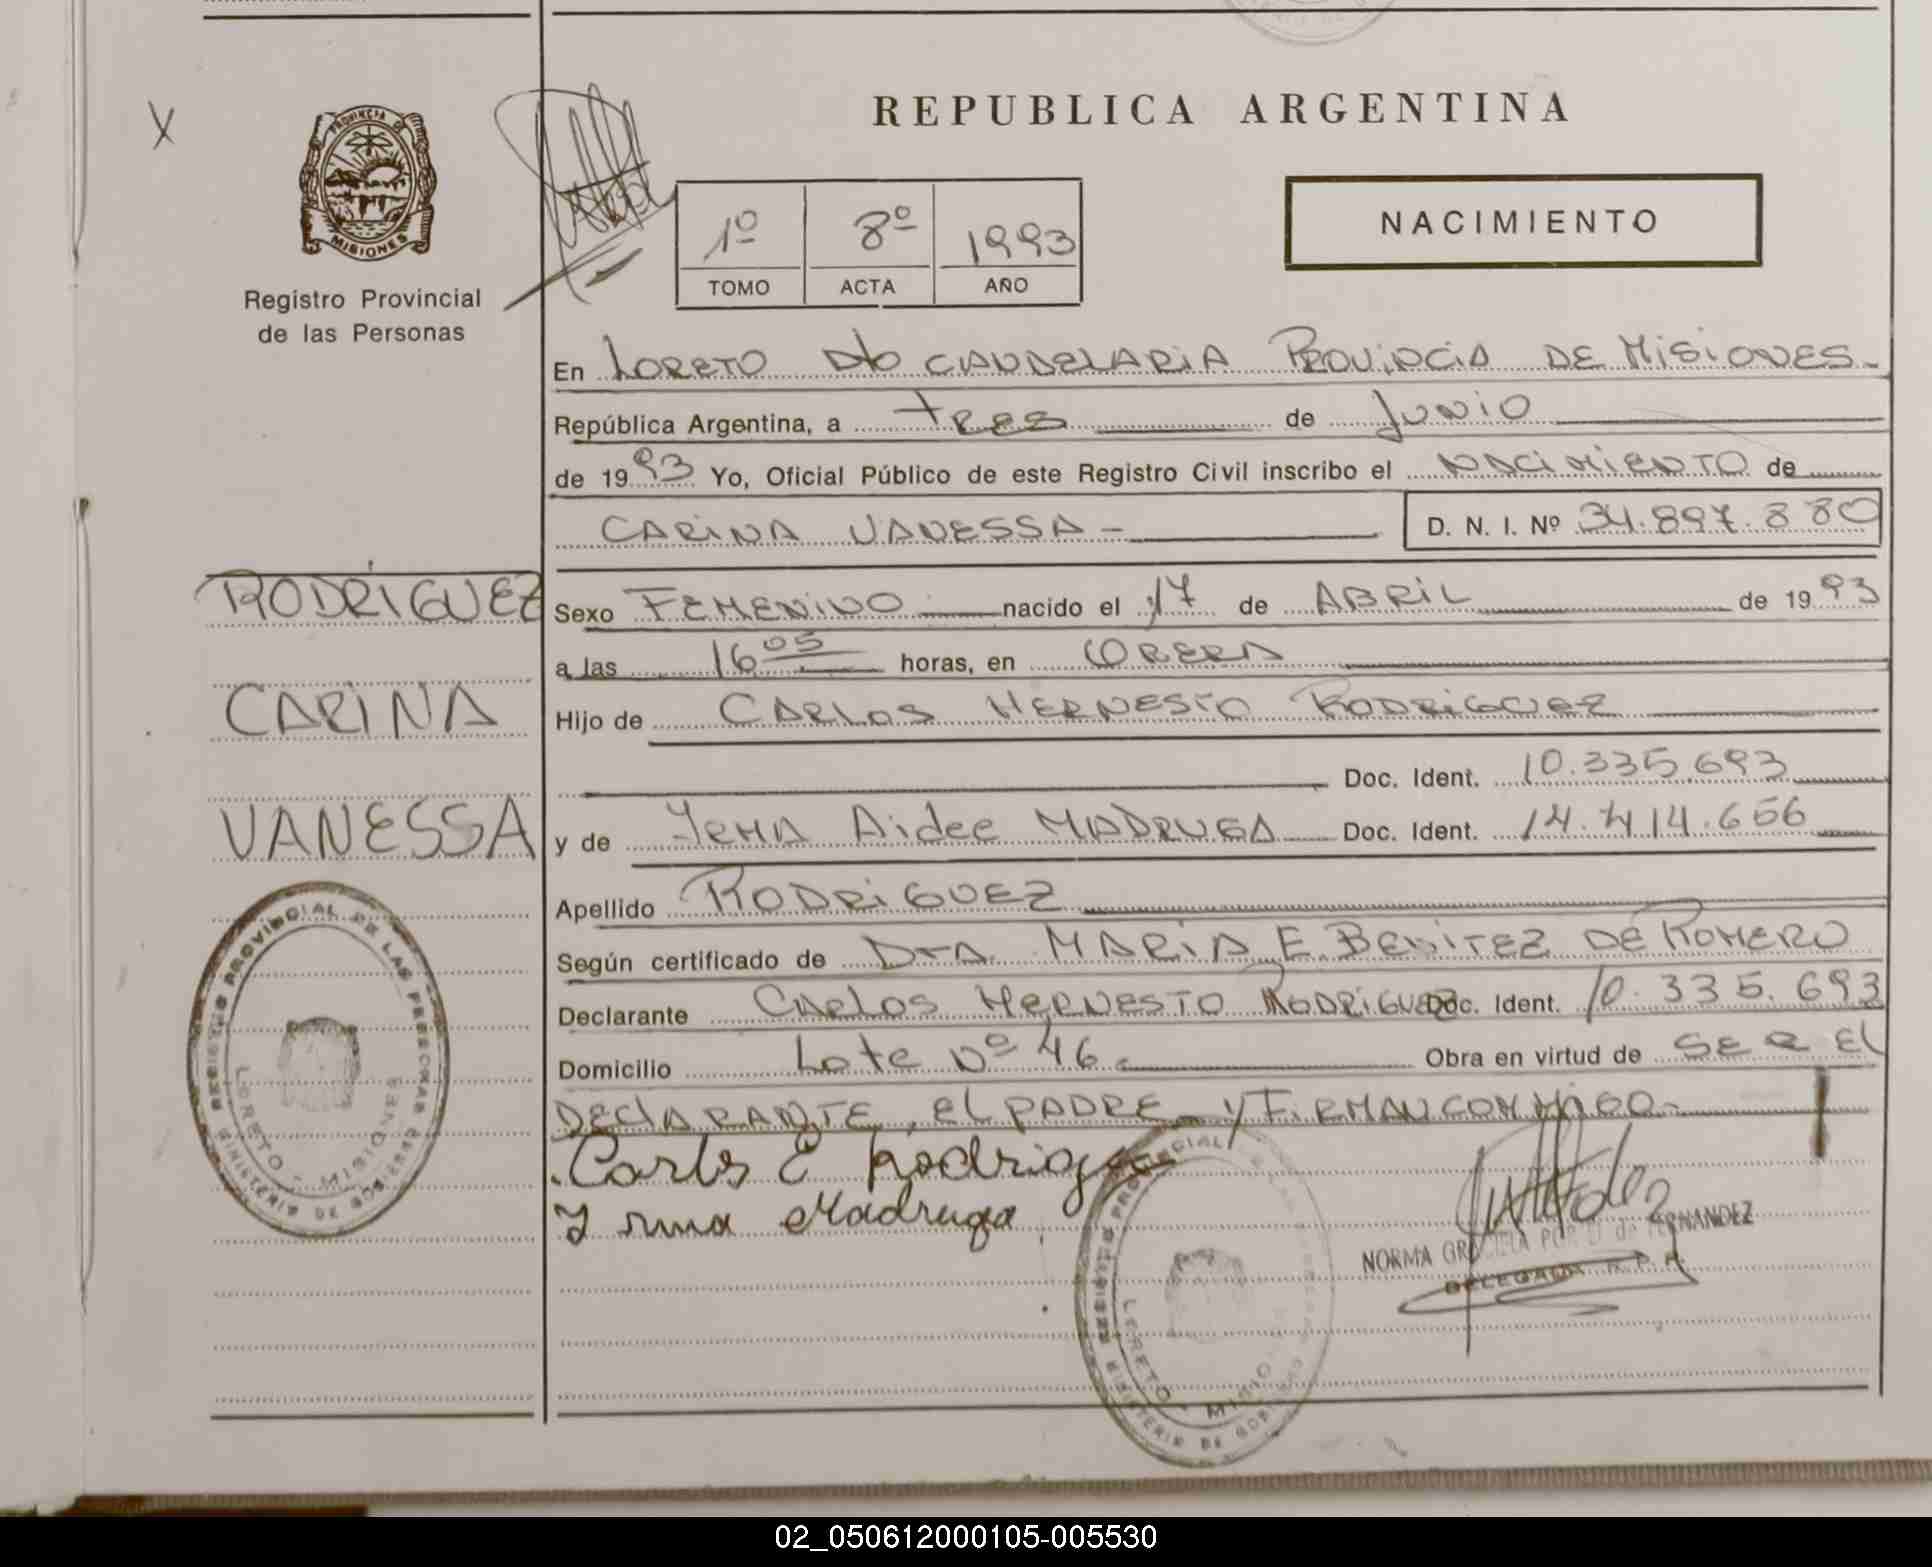 REPUBLICA ARGENTINA
PROVINCIA DE
MISIONES
Registro Provincial
de las Personas
X
1º 8º 1993
TOMO ACTA AÑO
NACIMIENTO
En LORETO Dto CANDELARIA PROVINCIA DE MISIONES
República Argentina, a tres de Junio
de 1993 Yo, Oficial Público de este Registro Civil inscribo el NACIMIENTO de
CARINA VANESSA - D. N. I. Nº 34.897.880
RODRIGUEZ
CARINA
VANESSA
Sexo FEMENINO nacido el 17 de ABRIL de 1993
a las 16 05 horas, en OBERA
Hijo de CARLOS HERNESTO RODRIGUEZ
Doc. Ident. 10.335.693
y de IRMA Aidee MADRUGA Doc. Ident. 14.414.656
Apellido RODRIGUEZ
Según certificado de DRA. MARIA E. BENITEZ DE ROMERO
Declarante CARLOS HERNESTO RODRIGUEZ Doc. Ident. 10.335.693
Domicilio Lote Nº 46 Obra en virtud de SER EL
DECLARANTE, EL PADRE Y FIRMAN CONMIGO-
Carlos E Rodrigez
Irma Madruga
NORMA GRACIELA de FERNANDEZ
DELEGADA R. P. P.
REGISTRO PROVINCIAL DE LAS PERSONAS
MINISTERIO DE GOBIERNO
LORETO - MISIONES
REGISTRO PROVINCIAL DE LAS PERSONAS
MINISTERIO DE GOBIERNO
LORETO - MISIONES
02_050612000105-005530